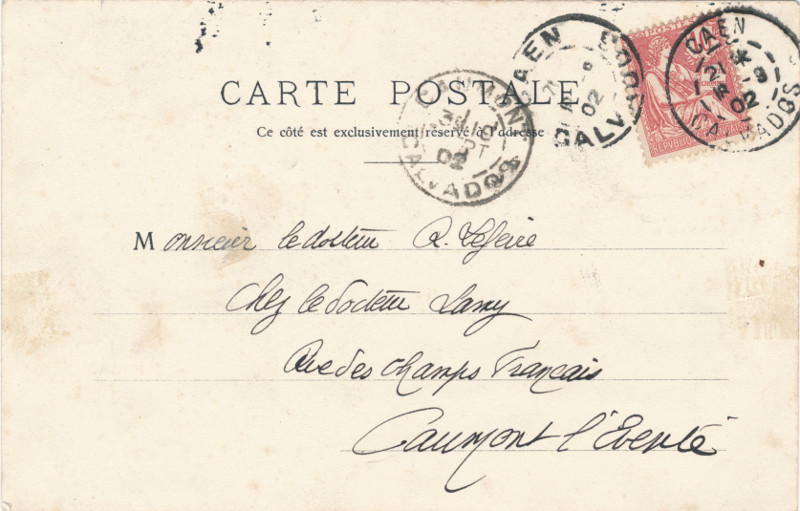 CARTE POSTALE
Ce côté est exclusivement réservé à l'adresse
CAEN
CALVADOS
02
CAEN
CALVADOS
02
CAUMONT
CALVADOS
02
Monsieur le docteur R. Lefevre
Chez le Docteur Lamy
Rue des Champs Français
Caumont l'Eventé